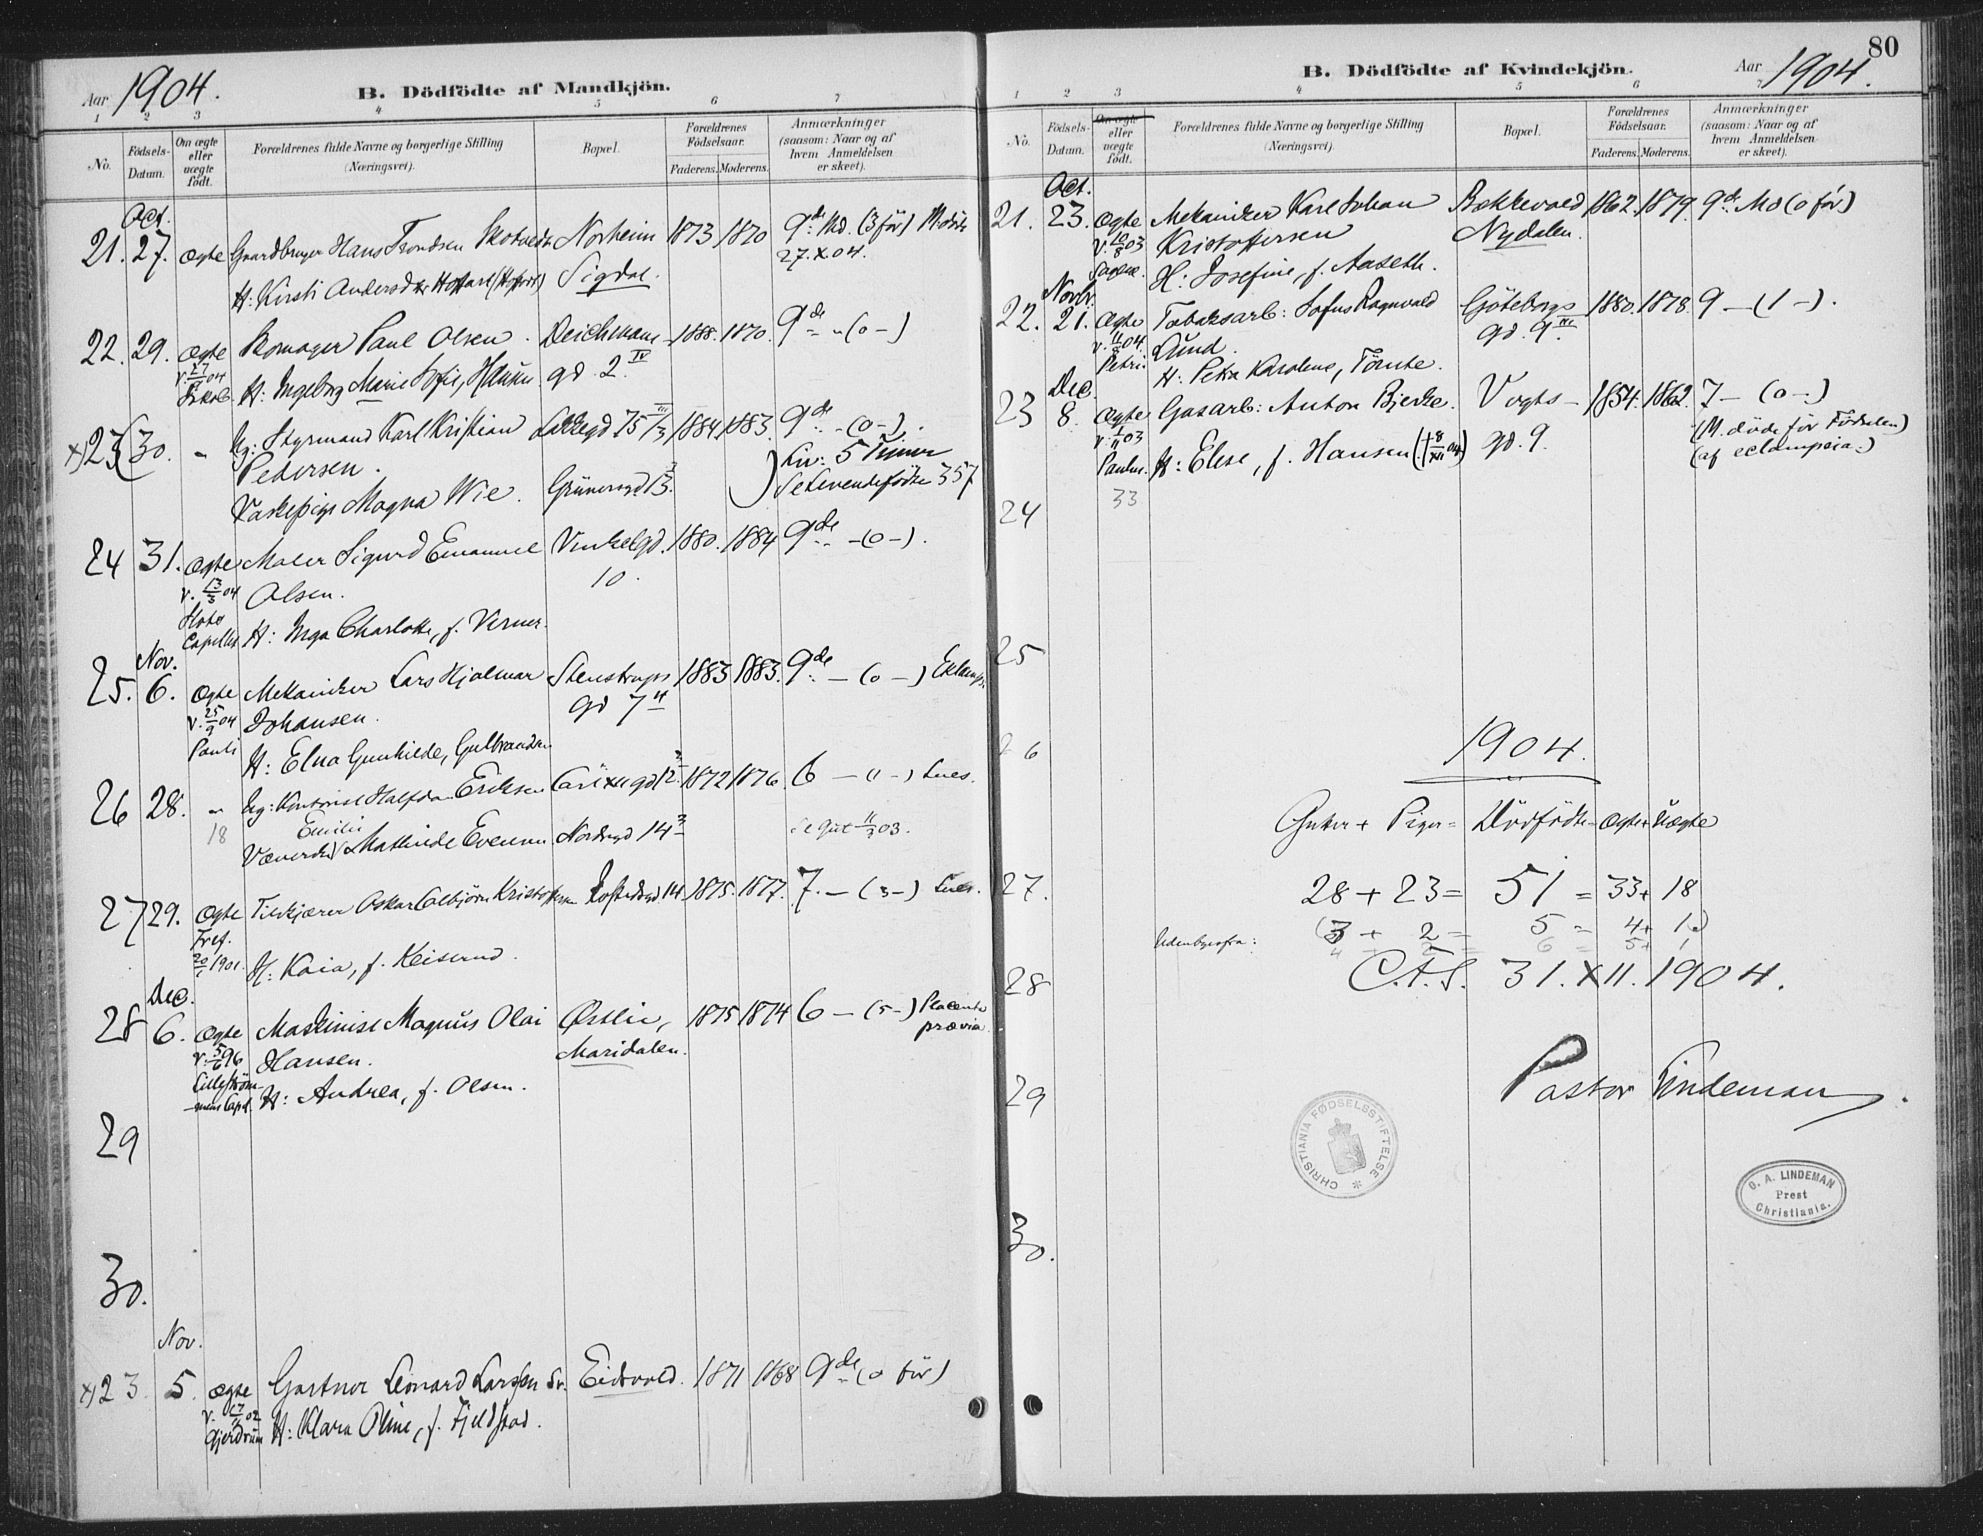 Aar 1904.
B. Dödfödte af Mandkjön.
1 2 3 4 5 6 7
No. Födsels-Datum. Om ægte eller uægte födt. Forældrenes fulde Navne og borgerlige Stilling (Næringsvei). Bopæl. Forældrenes Födselsaar. Faderens. Moderens. Anmærkninger (saasom: Naar og af hvem Anmeldelsen er skeet).
Oct.
21. 27. Ægte Gaardbruger Hans Norheim 1873 1870 9de Md. (3 för)
27.X.04.
H: Kirsti Sigdal.
22. 29. Ægte Skomager Paul Olsen. Deichmans- 1888. 1870. 9de - (0 -)
v. 04
H: Ingeborg Marie Sofie, gd. 2 IV
x) 23 30. - Ug: Styrmand Karl Kristian 75 III 1884 1883. 9de - (0 -).
Pedersen. Liv: 5 Timer
Vaskepige Magna Wie. Grünersgd 13. Se Levendefödte 357
24 31. Ægte Maler Sigurd Emanuel Vinkelgd. 1880. 1884 9de - (0 -).
v. 13/3 04 Olsen. 10.
Capellet H: Inga Charlotte, f. Verner.
Nov.
25. 6. Ægte Mekaniker Lars Hjalmar Stenstrups 1883 1883. 9de - (0 -) Eklamps.
v. 25/9 04 Johansen. gd 7 II
Pauli H: Elna Gunhilde, Gulbrandsen
26 28. - Ug: Kontorist Halfdan Eriksen Carl XII gd 12 1872 1876. 6 - (1 -) Lues.
18 Emilie
Mathilde Evensen Nordregd 14 3 Se Gut 11/3 03.
27 29. Ægte Oskar Kristoffersen 14. 1875. 1877. 7. - (3 -) Lues.
Tref.
20/1 1901. H: Kaia, f. Keiserud.
Dec.
28 6. Ægte Maskinist Magnus Olai Østlie, 1875 1874 6 - (5 -) Placenta prævia.
v. 5/6 96 Hansen. Maridalen.
Lillestrøm-
mens Capel. H: Andrea, f. Olsen.
29
30.
Nov.
x) 23. 5. Ægte Gartner Leonard Larssen Eidsvold. 1871 1868 9de (0 för)
v. 02
Gjerdrum H: Klara Oline, f. Fjeldstad.
80
B. Dödfödte af Kvindekjön.
Aar 1904.
1 2 3 4 5 6 7
No. Födsels-Datum. Om ægte eller uægte födt. Forældrenes fulde Navne og borgerlige Stilling (Næringsvei). Bopæl. Forældrenes Födselsaar. Faderens. Moderens. Anmærkninger (saasom: Naar og af hvem Anmeldelsen er skeet).
Oct.
21. 23. Ægte Mekaniker Karl Johan Bakkevold 1862. 1879. 9de Md (0 för)
v. 10/8 03 Kristoffersen Nydalen.
Sagene. H: Josefine, f. Aaseth.
Novbr.
22. 21. Ægte Tobaksarb: Sofus Ragnvald Göteborgs 1880. 1878. 9 - (1 -).
v. 04 Lund. gd. 9 III
Petri. H: Petra Karoline, Tömte.
Dec.
23 8. Ægte Gasarb: Anton Bjerke. Vogts- 1854. 1862. 7 - (0 -)
v. 03 (M. döde för Födselen)
Paulus. H: Elise, f. Hansen († 8/XII 04) gd. 9. (af eclampsia.)
33
24
25
26
1904.
Gutter + Piger = Dödfödte = Ægte + Uægte
27. 28 + 23 = 51 = 33 + 18
(3 + 2 = 5 = 4 + 1)
Udenbysfra:
28 31. XII. 1904.
Pastor Lindeman
29
CHRISTIANIA FØDSELSSTIFTELSE *
A. LINDEMAN
Prest
Christiania.
30.